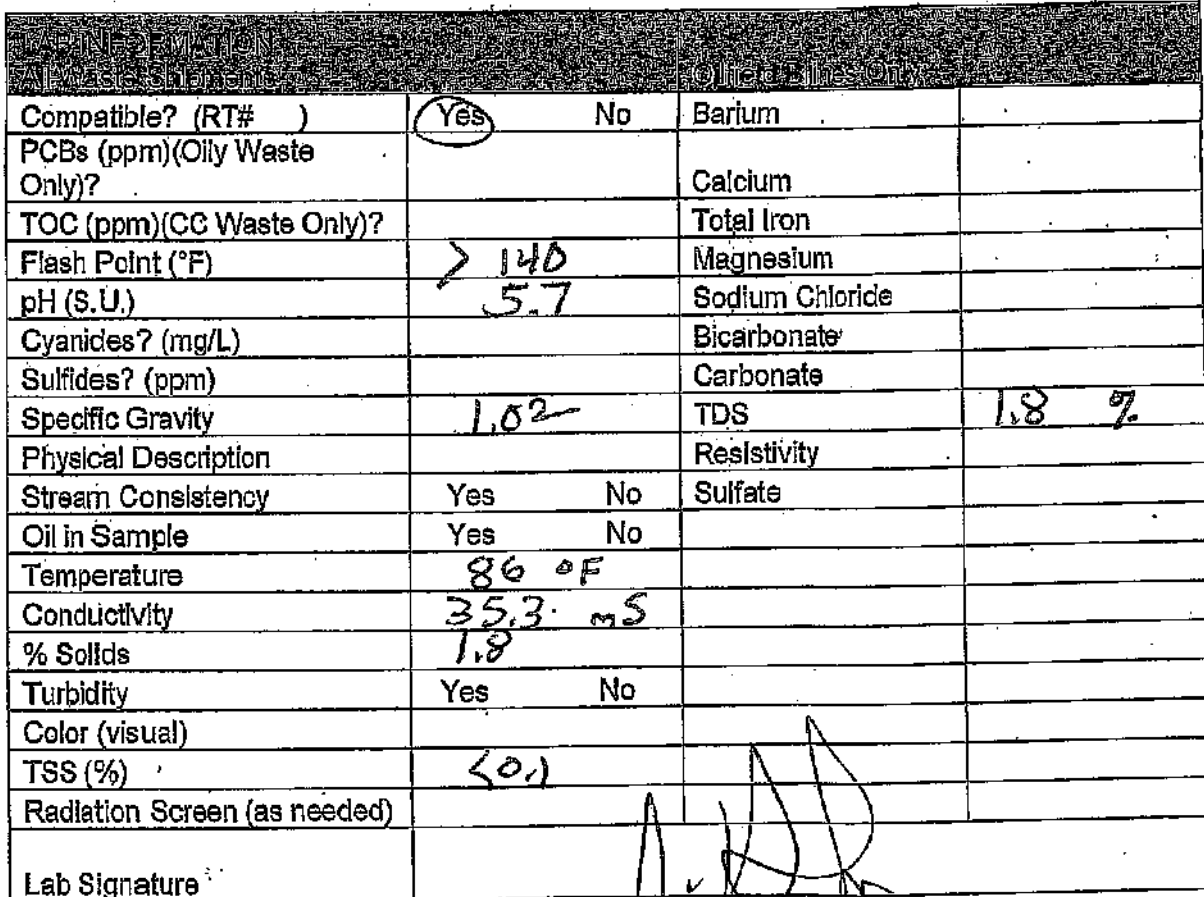 LAB INFORMATION
All Waste Shipments Oilfield Brines Only
Compatible? (RT# ) Yes No Barium
PCBs (ppm)(Oily Waste
Only)? Calcium
TOC (ppm)(CC Waste Only)? Total Iron
Flash Point (°F) > 140 Magnesium
pH (S.U.) 5.7 Sodium Chloride
Cyanides? (mg/L) Bicarbonate
Sulfides? (ppm) Carbonate
Specific Gravity 1.02 TDS 1.8 %
Physical Description Resistivity
Stream Consistency Yes No Sulfate
Oil in Sample Yes No
Temperature 86 °F
Conductivity 35.3 mS
% Solids 1.8
Turbidity Yes No
Color (visual)
TSS (%) <0.1
Radiation Screen (as needed)
Lab Signature